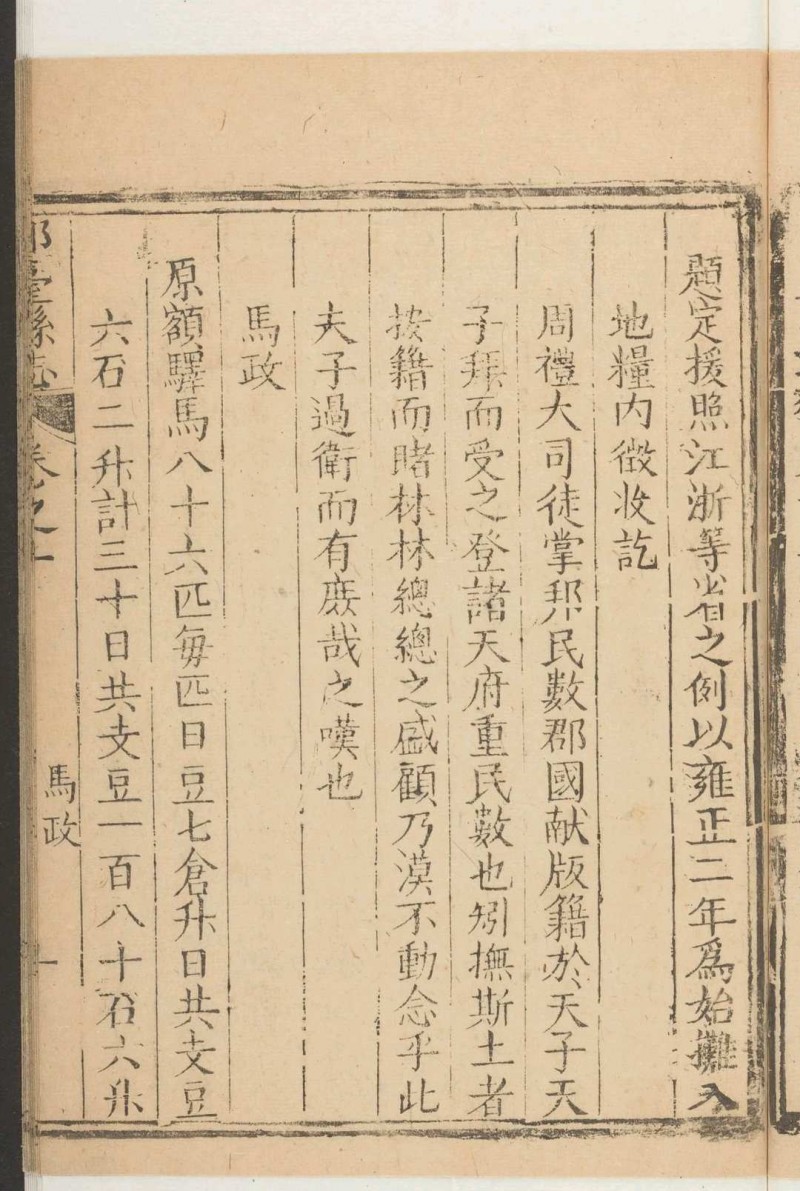 題定援照江浙等省之例以雍正二年爲始攤入
地糧內徵收訖
周禮大司徒掌邦民數郡國献版籍於天子天
子拜而受之登諸天府重民數也矧撫斯土者
按籍而睹林林總總之盛顧乃漠不動念乎此
夫子過衛而有庶哉之嘆也
馬政
原額驛馬八十六匹每匹日豆七倉升日共支豆
六石二升計三十日共支豆一百八十石六升
臺縣志 卷之 馬政 一